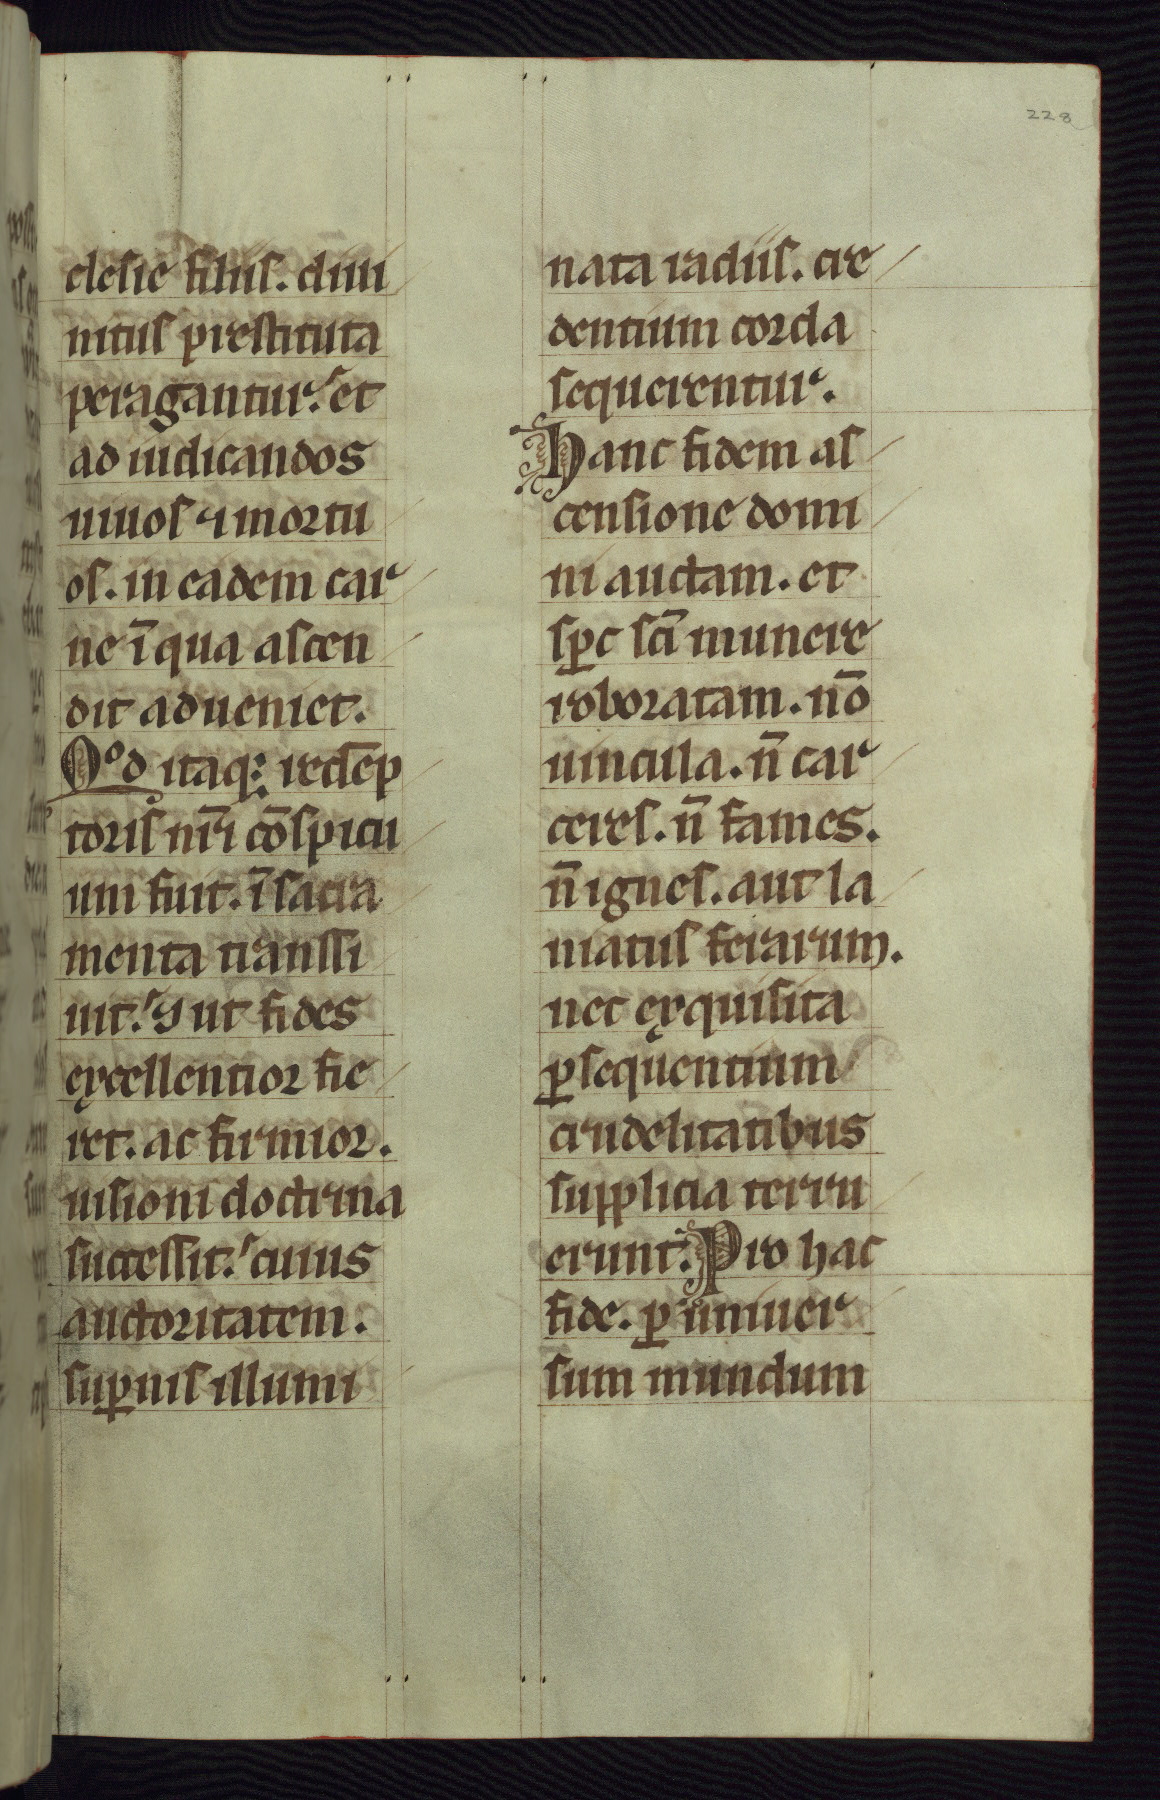 228
clesie filiis. diui
nitus prestituta
peragantur. et
ad iudicandos
uiuos ⁊ mortu
os. in eadem car
ne ī qua ascen
dit adueniet.
Qᵒd itaq; redēp
toris nr̄i cōspicu
um fuit. ī sacra
menta transsi
uit. ꝯ ut fides
excellentior fie
ret. ac firmior.
uisioni doctrina
successit. cuius
auctoritatem.
suꝑnis illumi
nata radiis. cre
dentium corda
sequerentur.
Hanc fidem as
censione domi
ni auctam. et
sp̄c sc̄i munere
roboratam. nō
uincula. n̄ car
ceres. n̄ fames.
n̄ ignes. aut la
niatus ferarum.
nec exquisita
ꝑsequentium
crudelitatibus
supplicia terru
erunt. Pro hac
fide. ꝑ uniuer
sum mundum